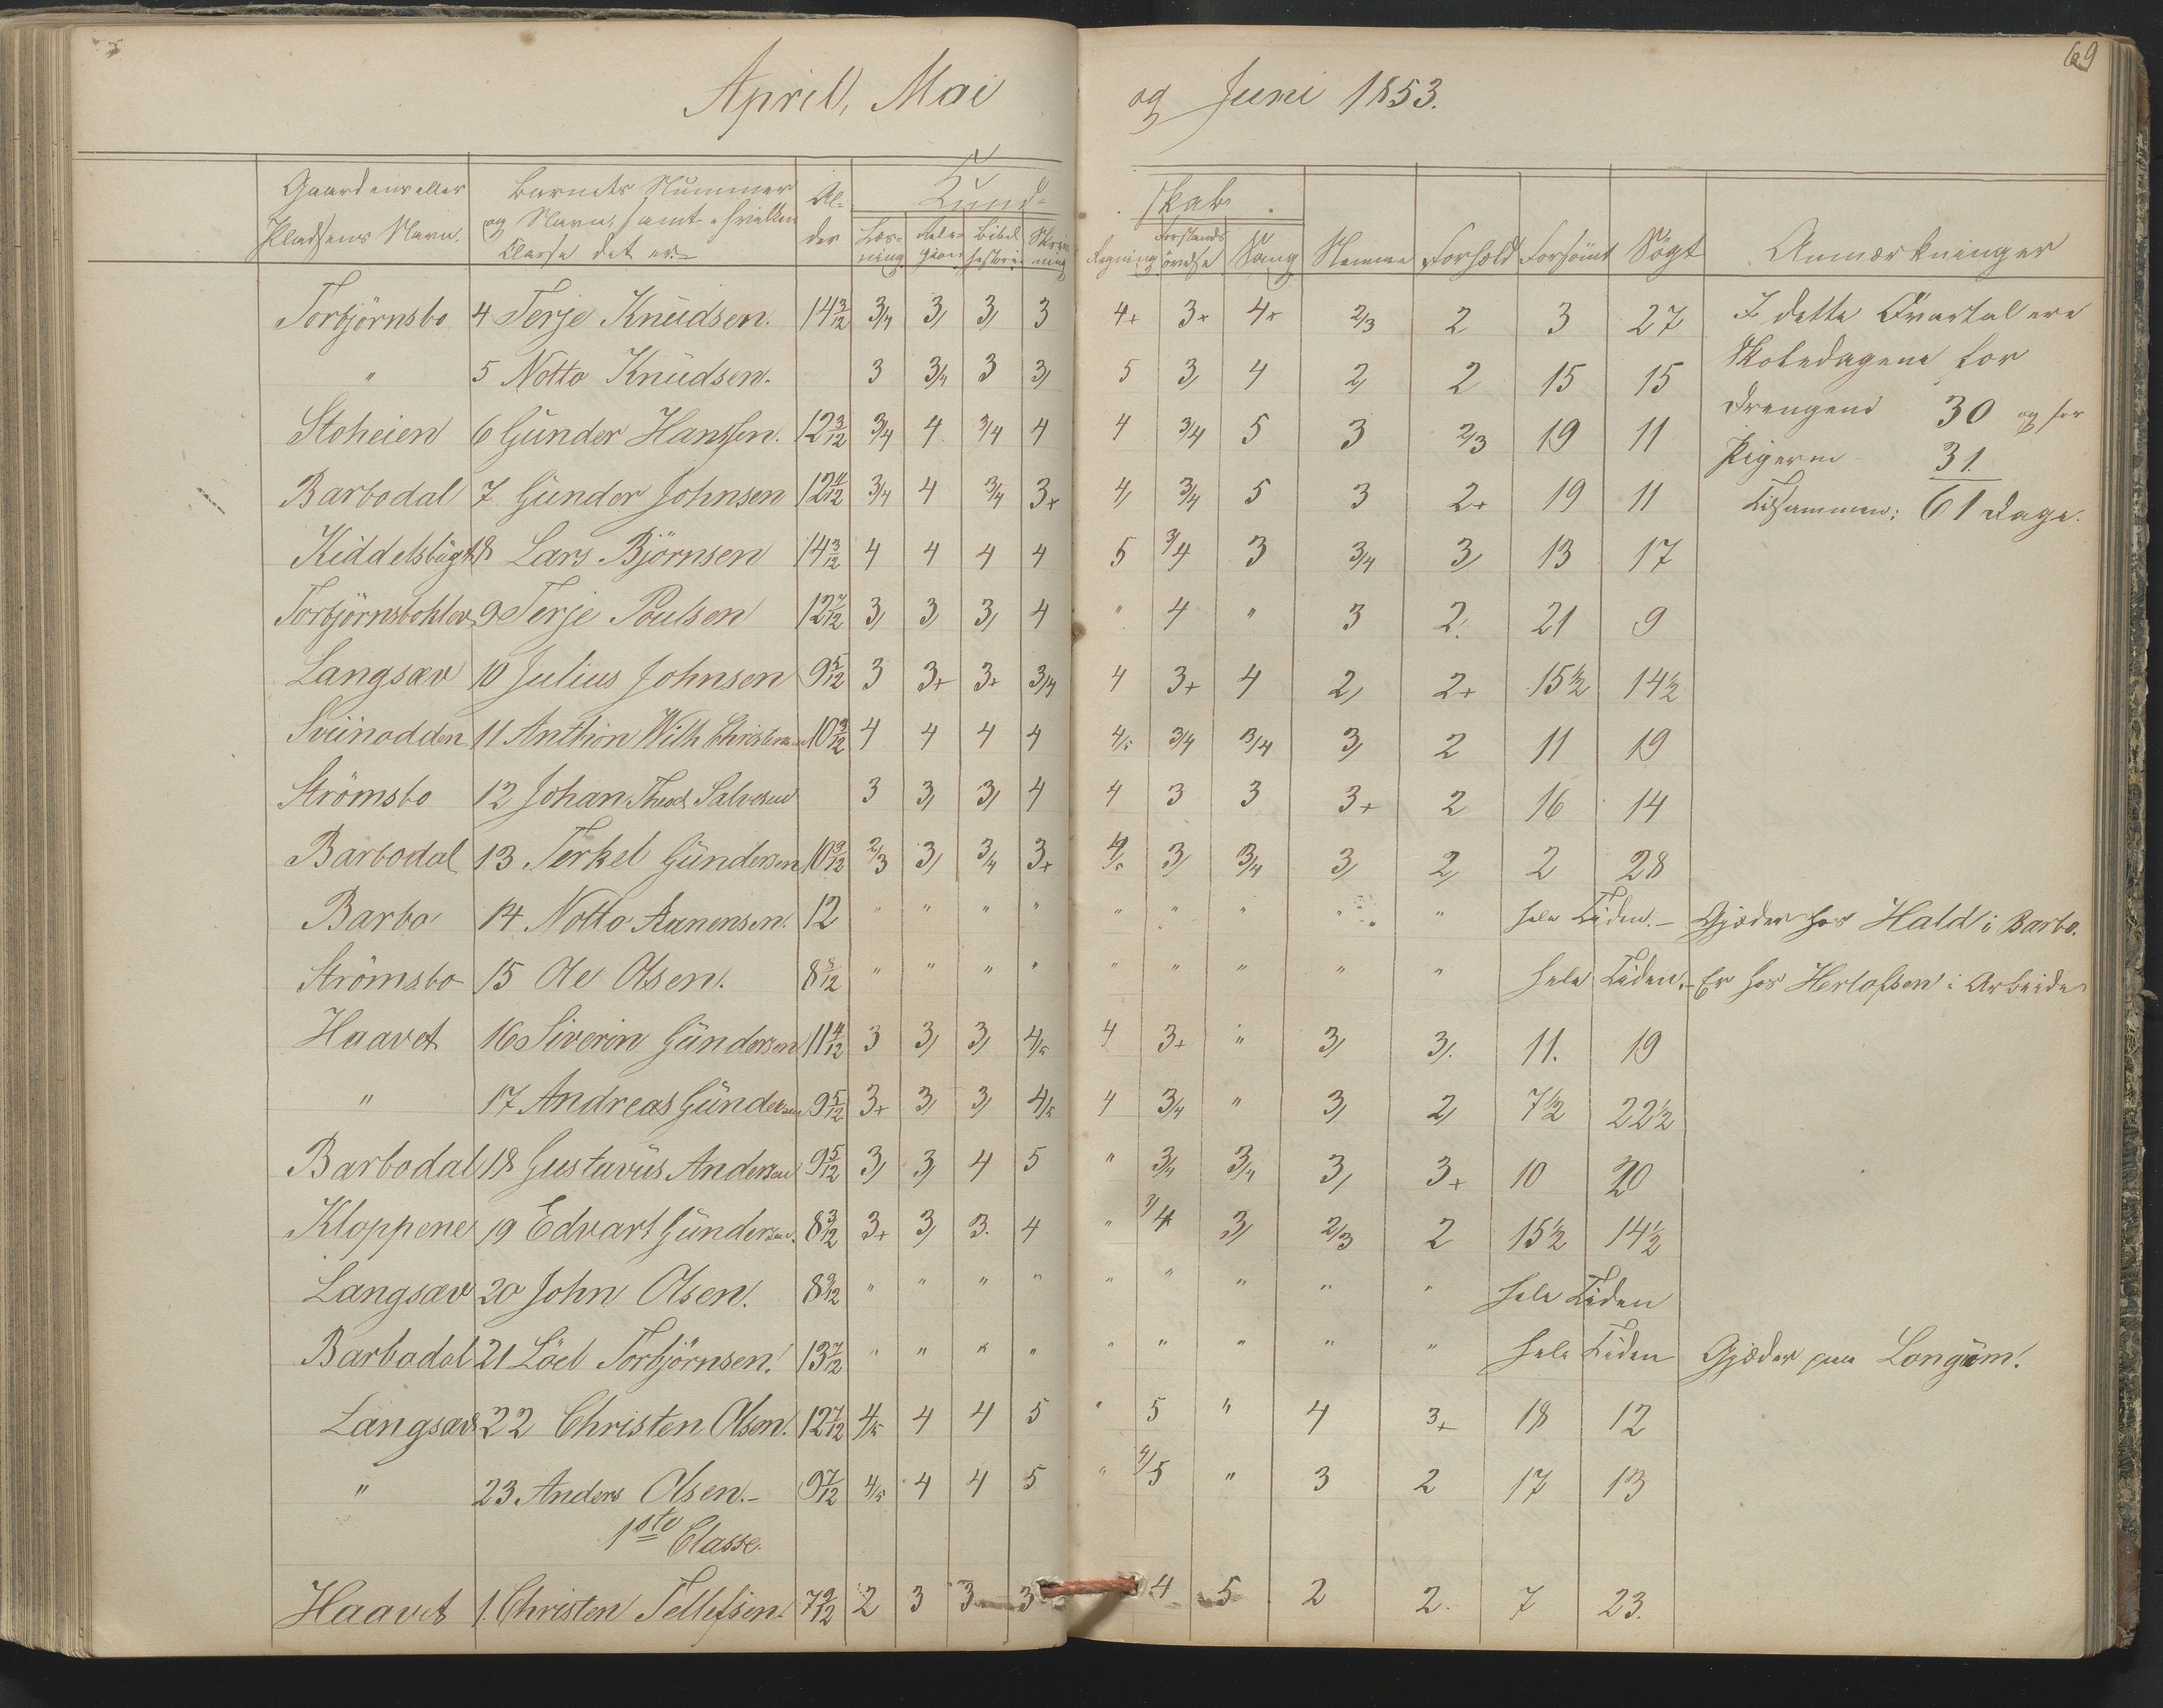 69
April, Mai og Juni 1853.
Gaardens eller Pladsens Navn. | Barnets Nummer og Navn, samt i hvilken Classe det er. | Al-der | Kund-skab. | Nemme | Forhold | Forsömt | Sögt | Anmærkninger
Læs-ning | Reli-gion | Bibel historie | Skriv-ning | Regning | Forstands övelse | Sang
Torbjörnsbo 4 Terje Knudsen. 14 3/12 3/4 3, 3, 3 4+ 3+ 4+ 2/3 2 3 27 I dette Qvartal ere
" 5 Notto Knudsen. 3 3/4 3 3, 5 3, 4 2, 2 15 15 Skoledagene for
Stoheien 6 Gunder Hanssen. 12 3/12 3/4 4 3/4 4 4 3/4 5 3 2/3 19 11 Drengene 30 og for
Barbodal 7 Gunder Johnsen 12 4/12 3/4 4 3/4 3+ 4, 3/4 5 3 2+ 19 11 Pigerne 31.
Tilsammen: 61 Dage.
Kiddelsbugt 8 Lars Björnsen 14 3/12 4 4 4 4 5 3/4 3 3/4 3, 13 17
9 Terje Poulsen 12 3, 3, 3, 4 " 4 " 3 2. 21 9
Langsæv 10 Julius Johnsen 9 5/12 3 3+ 3+ 3/4 4 3+ 4 2, 2+ 15½ 14½
Sviinodden 11 Anthon Wilh Christensen 10 3/12 4 4 4 4 4/5 3/4 3/4 3, 2 11 19
Strömsbo 12 Johan Theod. Salvesen 3 3, 3, 4 4 3 3 3+ 2 16 14
Barbodal 13 Terkel Gundersen 10 9/12 2/3 3, 3/4 3+ 4/5 3, 3/4 3, 2, 2 28
Barbo 14 Notto Aanensen. 12 " " " " " " " " " hele Tiden. - Gjæder hos Hald i Barbo.
Strömsbo 15 Ole Olsen. 8 " " " " " " " " " hele Tiden. - Er hos Herlofsen i Arbeide
Haavet 16 Siverin Gundersen 11 4/12 3 3, 3, 4/5 4 3+ " 3, 3,. 11. 19
" 17 Andreas Gundersen 9 5/12 3+ 3, 3, 4/5 4 3/4 " 3, 2, 7½ 22½
Barbodal 18 Gustavus Andersen 9 5/12 3, 3, 4 5 " 3/4 3/4 3, 3+ 10 20
Kloppene 19 Edvart Gundersen. 8 3/12 3+ 3, 3. 4 " 3/4 3, 2/3 2 15½ 14½
Langsæv 20 John Olsen. 8 9/12 " " " " " " " " " hele Tiden
Barbodal 21 Löel Torbjörnsen. 13 7/12 " " " " " " " " " hele Tiden Gjæder paa Longum.
Langsæv 22 Christen Olsen. 12 7/12 4/5 4 4 5 " 5 " 4 3+ 18 12
" 23 Anders Olsen. - 9 7/12 4/5 4 4 5 " 4/5 " 3 2 17 13
1ste Classe.
Haavet 1. Christen Tellefsen. 7 9/12 2 3 3 3 4 5 2 2. 7 23.